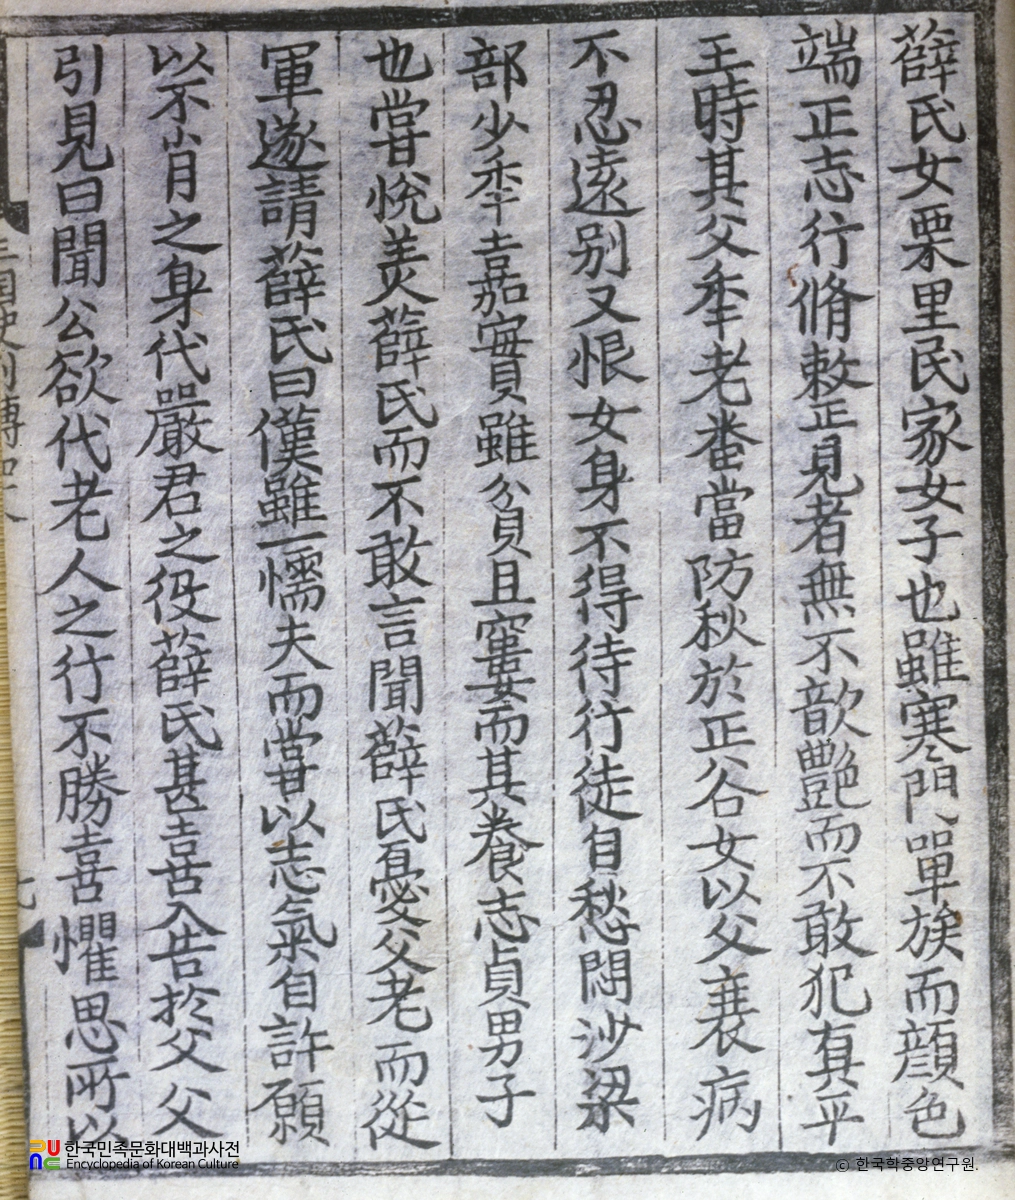 薛氏女栗里民家女子也雖寒門單族而顔色
端正志行脩整見者無不歆艶而不敢犯眞平
王時其父年老番當防秋於正谷女以父衰病
不忍遠别又恨女身不得待行徒自愁悶沙梁
部少年嘉實雖貧且窶而其養志貞男子
也嘗悅美薛氏而不敢言聞薛氏憂父老而從
軍遂請薛氏曰僕雖一懦夫而嘗以志氣自許願
以不肖之身代嚴君之役薛氏甚喜入告於父父
引見曰聞公欲代老人之行不勝喜懼思所以
한국민족문화대백과사전
Encyclopedia of Korean Culture
© 한국학중앙연구원.